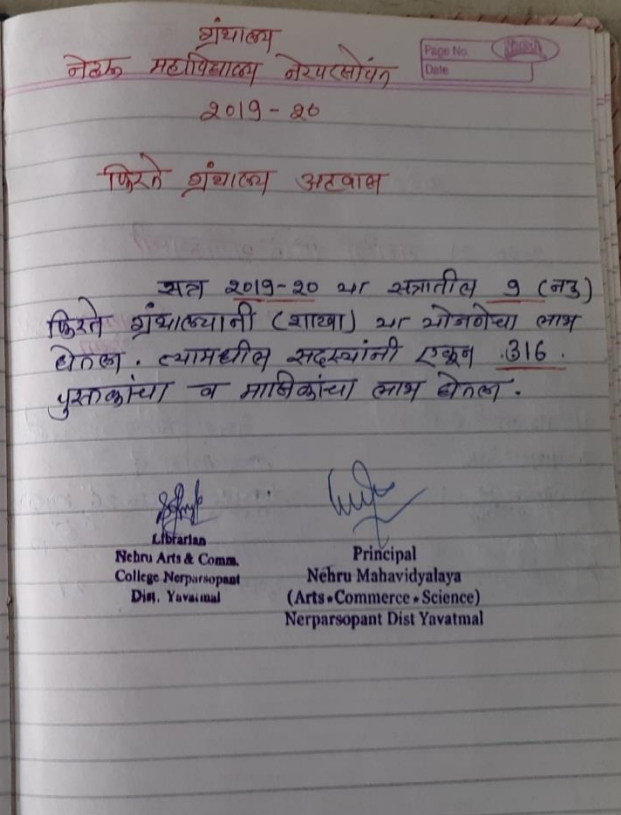 ग्रंथालय
Page No.
Date
नेहरू महाविद्यालय नेरपरसोपंत
२०19-२०
फिरते ग्रंथालय अहवाल
सत्र २०19-२० या सत्रातील 9 (नऊ)
फिरते ग्रंथालयानी (शाखा) या योजनेचा लाभ
घेतला. त्यामधील सदस्यांनी एकूण 316.
पुस्तकांचा व मासिकांचा लाभ घेतला.
Librarian
Nehru Arts & Comm.
College Nerparsopant
Dist. Yavatmal
Principal
Nehru Mahavidyalaya
(Arts★Commerce★Science)
Nerparsopant Dist Yavatmal